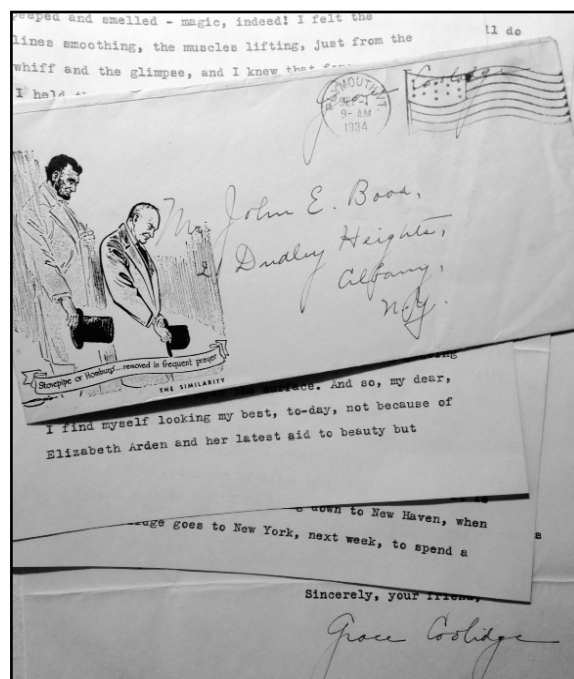 peeped and smelled - magic, indeed! I felt the
lines smoothing, the muscles lifting, just from the
ll do
whiff and the glimpse, and I knew that
I held
Grace Coolidge
PLYMOUTH, VT.
SEP
9-AM
1934
Mr. John E. Booa,
2 Dudley Heights,
Albany,
N.Y.
Stovepipe or Homburg...removed in frequent prayer
THE SIMILARITY
surface. And so, my dear,
I find myself looking my best, to-day, not because of
Elizabeth Arden and her latest aid to beauty but
down to New Haven, when
goes to New York, next week, to spend a
Sincerely, your friend,
Grace Coolidge